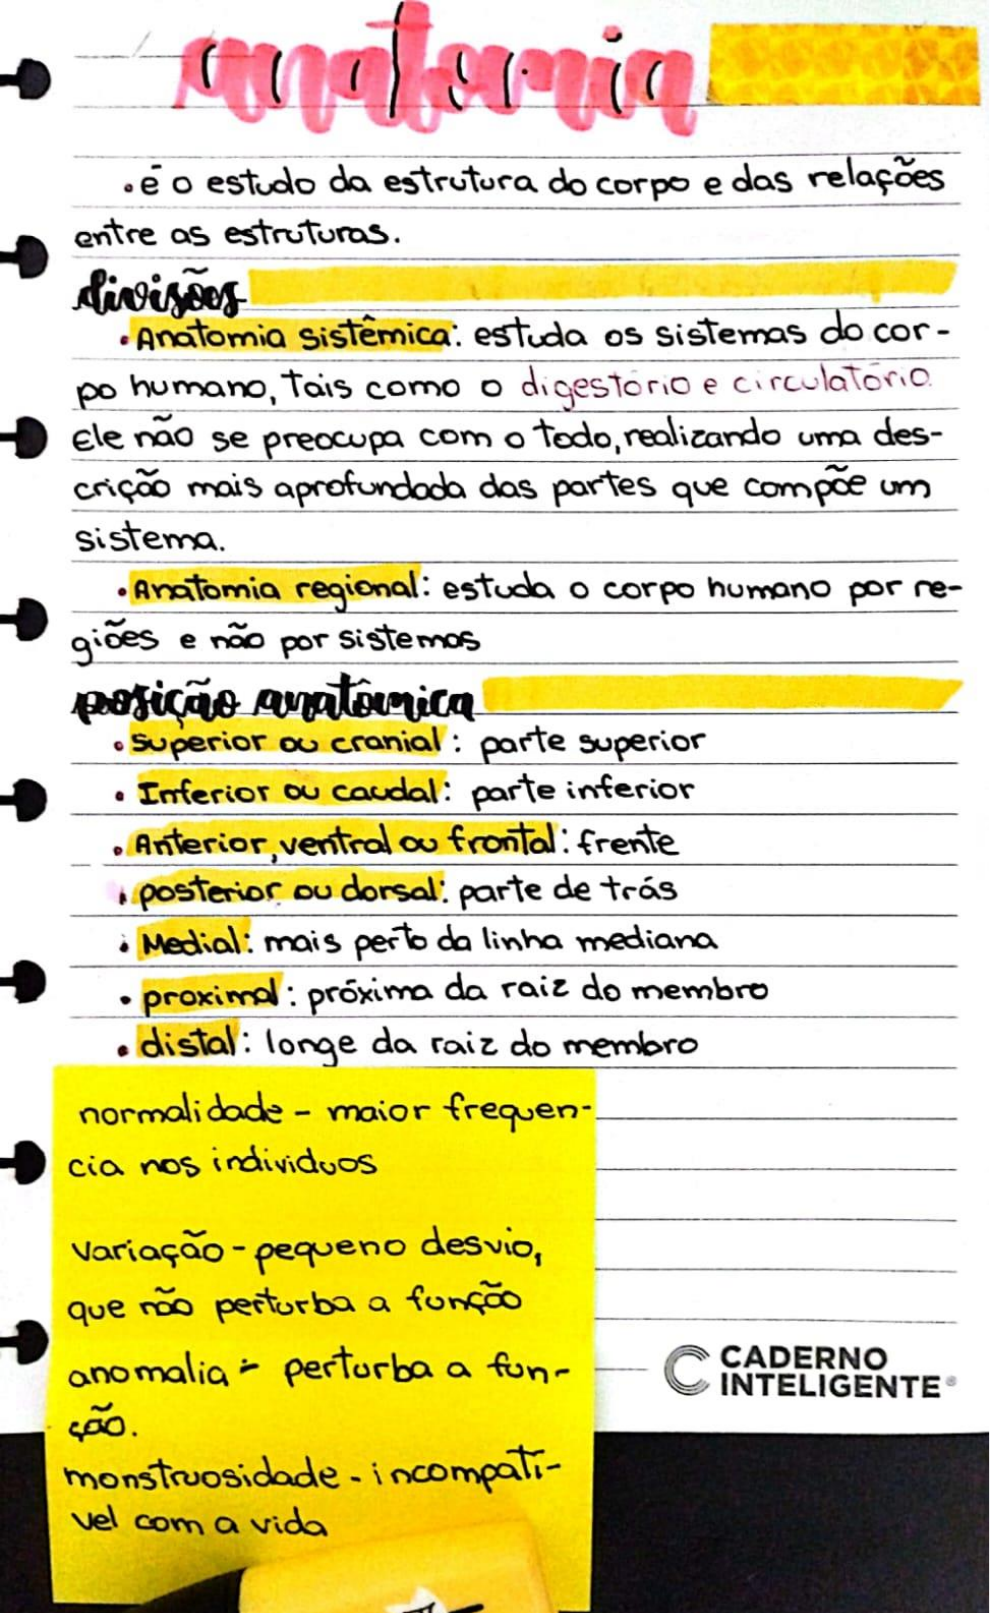 anatomia
• é o estudo da estrutura do corpo e das relações
entre as estruturas.
divisões
• Anatomia sistêmica: estuda os sistemas do cor-
po humano, tais como o digestório e circulatório.
Ele não se preocupa com o todo, realizando uma des-
crição mais aprofundada das partes que compõe um
sistema.
• Anatomia regional: estuda o corpo humano por re-
giões e não por sistemas
posição anatômica
• Superior ou cranial: parte superior
• Inferior ou caudal: parte inferior
• Anterior, ventral ou frontal: frente
• posterior ou dorsal: parte de trás
• Medial: mais perto da linha mediana
• proximal: próxima da raiz do membro
• distal: longe da raiz do membro
normalidade - maior frequen-
cia nos individuos
variação - pequeno desvio,
que não perturba a função
anomalia - perturba a fun-
ção.
monstruosidade - incompatí-
vel com a vida
CADERNO
INTELIGENTE®